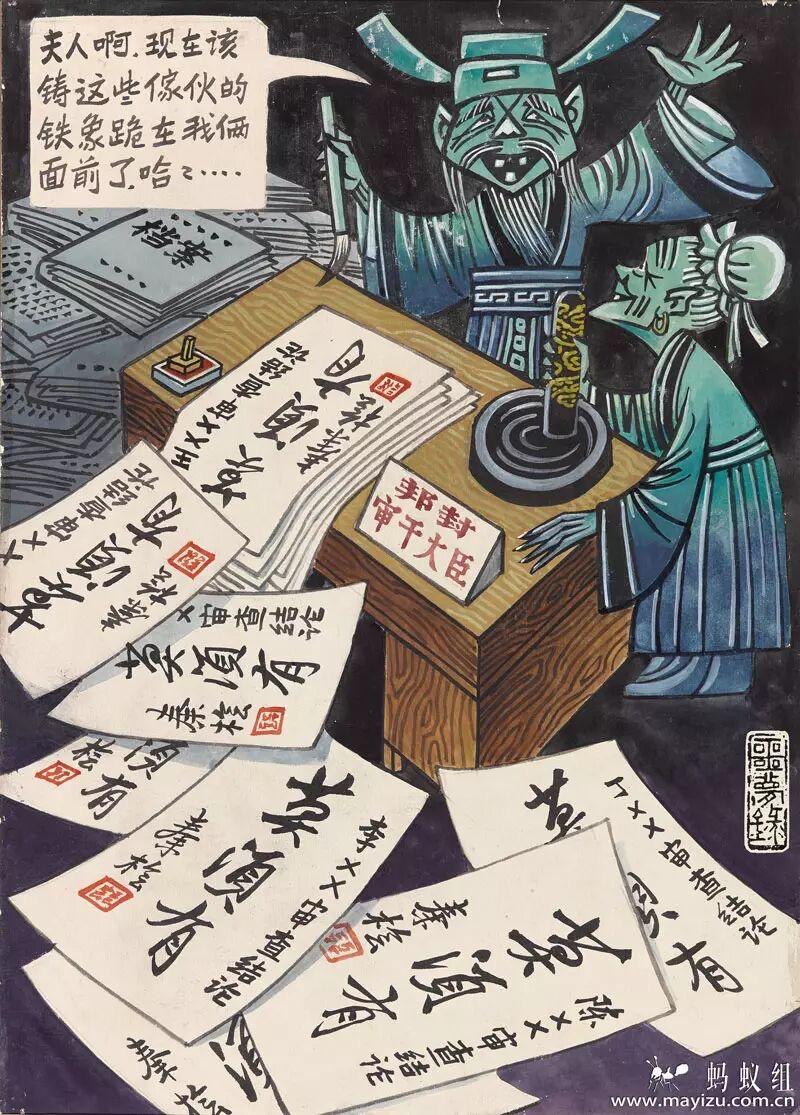 夫人啊.现在该
铸这些傢伙的
铁象跪在我俩
面前了.哈㇀㇀‥‥
档案
王××审查结论
莫須有
秦桧
邦封
审干大臣
××审查结论
莫須有
秦桧
×审查结论
莫須有
秦桧
須有
桧
李××审查结论
莫須有
秦桧
陈××审查结论
莫須有
秦桧
丁××审查结论
莫
有
秦桧
噩梦录
蚂蚁组
www.mayizu.com.cn